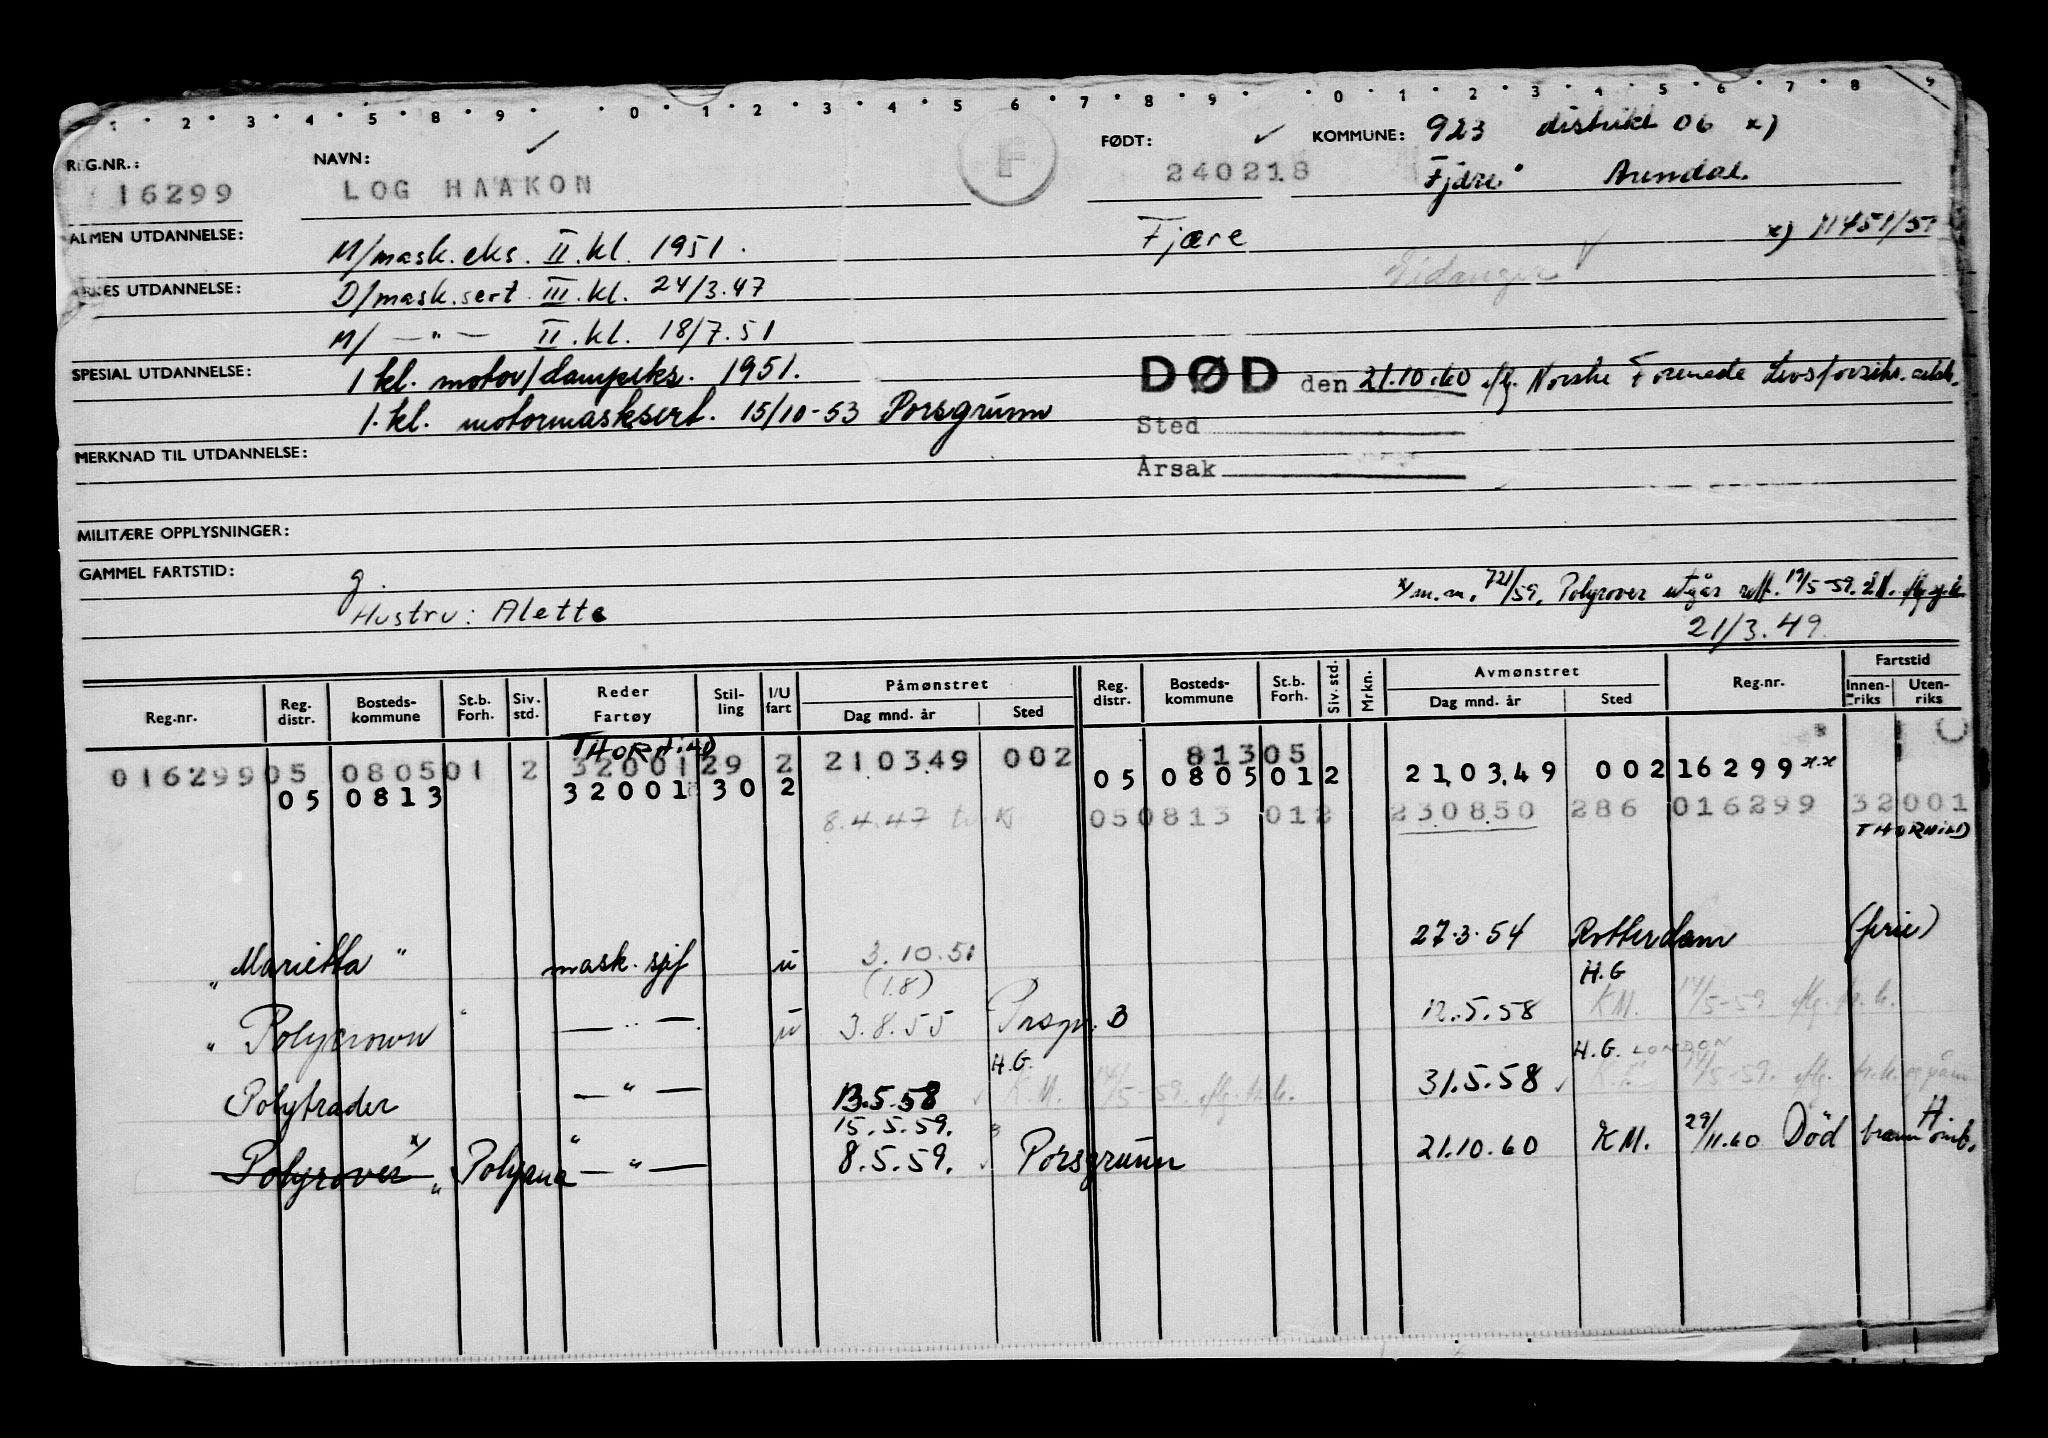 1 · 2 · 3 · 4 · 5 · 8 · 9 · · 0 · 1 · 2 · 3 · 4 · 5 · 6 · 7 · 8 · 9 · · 0 · 1 · 2 · 3 · 4 · 5 · 6 · 7 · 8 · 9
REG.NR.: NAVN: F FØDT: KOMMUNE: 923 distrikt 06 x)
16299 LOG HAAKON 240218 Fjære Arendal.
ALMEN UTDANNELSE: M/mask.eks. II.kl. 1951. Fjære x) 11451/51
YRKES UTDANNELSE: D/mask.sert III.kl. 24/3.47 Eidanger
M/ — " — II.kl. 18/7.51
SPESIAL UTDANNELSE: 1 kl. motor/dampeks. 1951. DØD den 21.10.60 iflg. Norske Forenede Livsforsikr.
1.kl. motormasksert. 15/10-53 Porsgrunn Sted
MERKNAD TIL UTDANNELSE: Årsak
MILITÆRE OPPLYSNINGER:
GAMMEL FARTSTID: g. x/ m.m. 721/59. Polyrover utgår rett. 19/5-59.
Hustru: Alette 21/3.49.
Reg.nr. Reg. distr. Bosteds- kommune St.b. Forh. Siv. std. Reder Fartøy Stil- ling I/U fart Påmønstret Dag mnd. år Sted Reg. distr. Bosteds- kommune St.b. Forh. Siv. std. Mrkn. Avmønstret Dag mnd. år Sted Reg.nr. Fartstid Innen- riks Uten- riks
THORHILD
016299 05 0805 01 2 32001 29 2 210349 002 81305
05 0813 32001 30 2 05 0805 01 2 210349 002 16299 x.x
8.4.47 05 0813 01 2 230850 286 016299 32001
THORHILD
" Marietta " mask.sjef u 3.10.51 27.3.54 Rotterdam (ferie)
(1.8) H.G
" Polycrown — " — u 3.8.55 Prsgr. B 12.5.58 KM. 14/5-59
H.G. H.G. LONDON
Polytrader — " — 13.5.58 K.M. 14/5-59. 31.5.58 14/5-59.
15.5.59.
Polyrover x/ " Polyana " — " — 8.5.59. Porsgrunn 21.10.60 KM. 29/11.60 Død